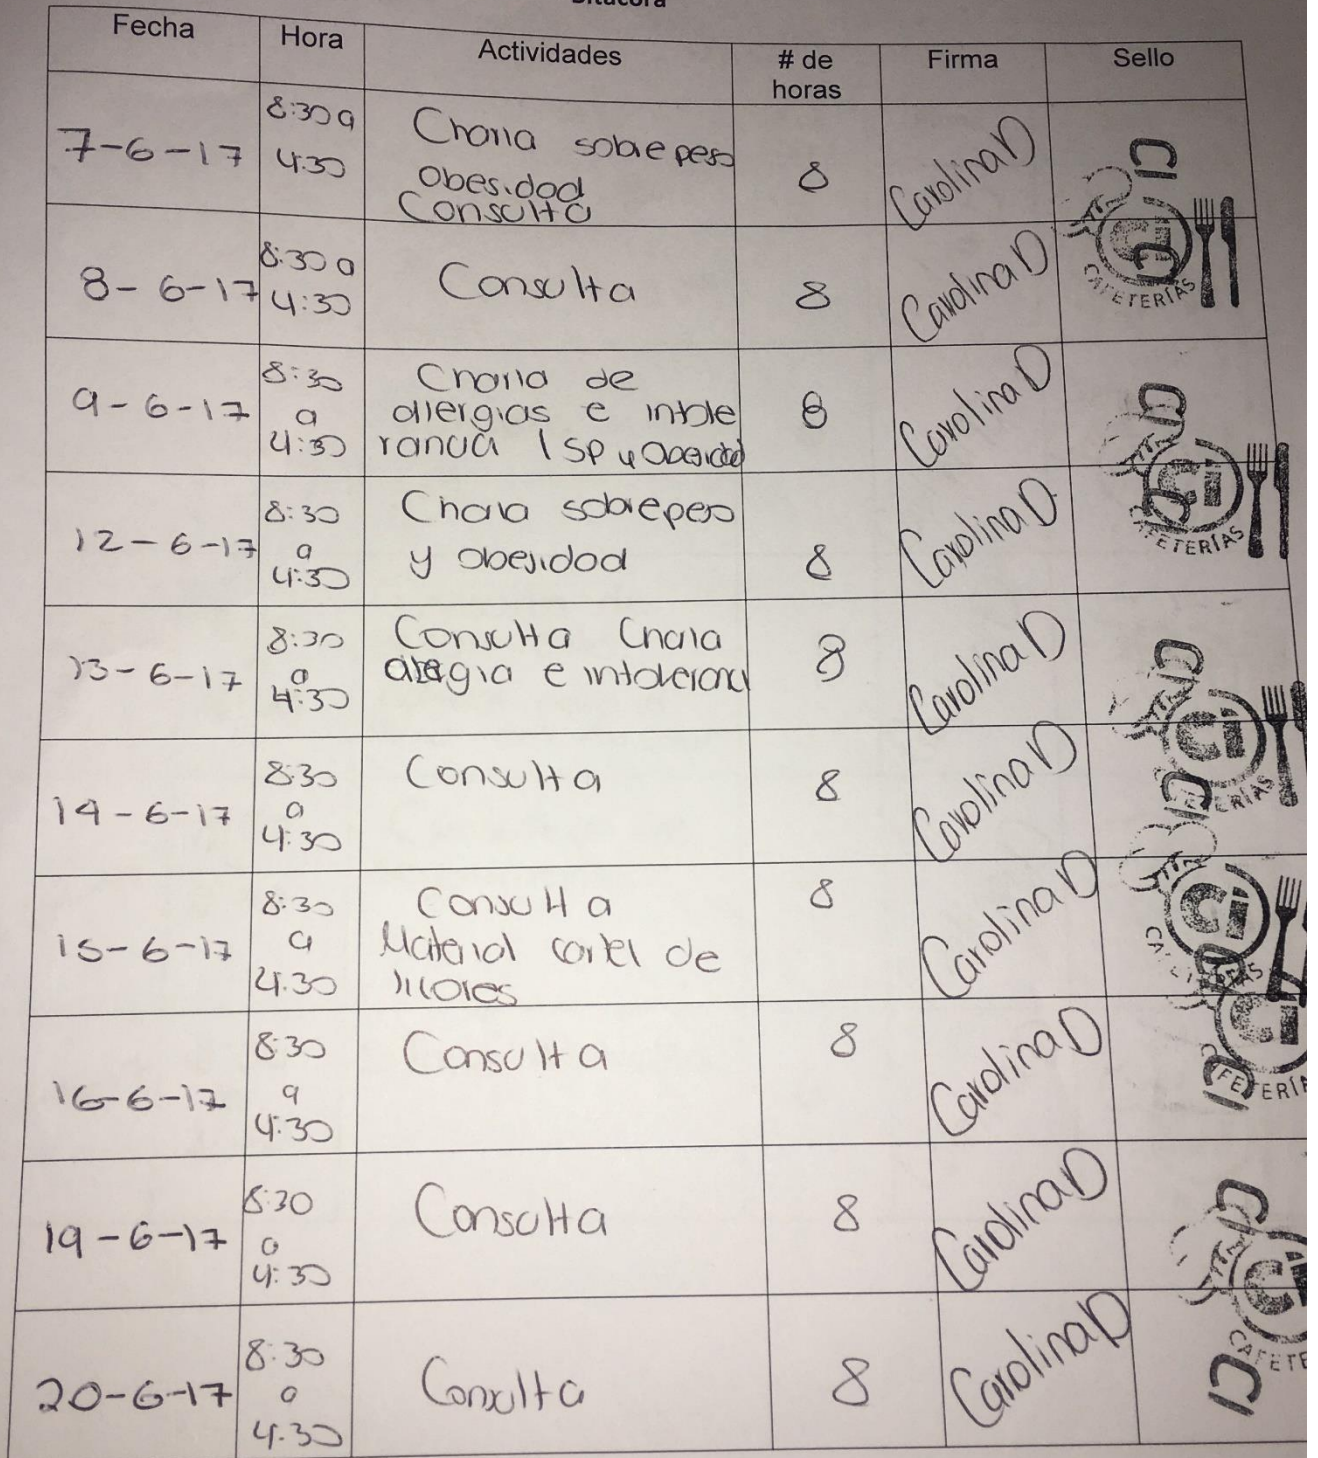 Bitácora
Fecha Hora Actividades # de horas Firma Sello
7-6-17 8:30 a 4:30 Charla sobrepeso Obesidad Consulta 8 Carolina D
8-6-17 8:30 a 4:30 Consulta 8 Carolina D
9-6-17 8:30 a 4:30 Charla de alergias e intole rancia / SP y Obesidad 8 Carolina D
12-6-17 8:30 a 4:30 Charla sobrepeso y obesidad 8 Carolina D
13-6-17 8:30 a 4:30 Consulta Charla alergia e intolerancia 8 Carolina D
14-6-17 8:30 a 4:30 Consulta 8 Carolina D
15-6-17 8:30 a 4:30 Consulta Material cartel de licores 8 Carolina D
16-6-17 8:30 a 4:30 Consulta 8 Carolina D
19-6-17 8:30 a 4:30 Consulta 8 Carolina D
20-6-17 8:30 a 4:30 Consulta 8 Carolina D
Ci CAFETERÍAS